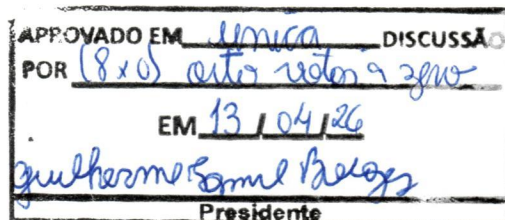 APROVADO EM única DISCUSSÃO
POR (8 x 0) oito votos a zero
EM 13 / 04 / 26
Guilherme
Presidente